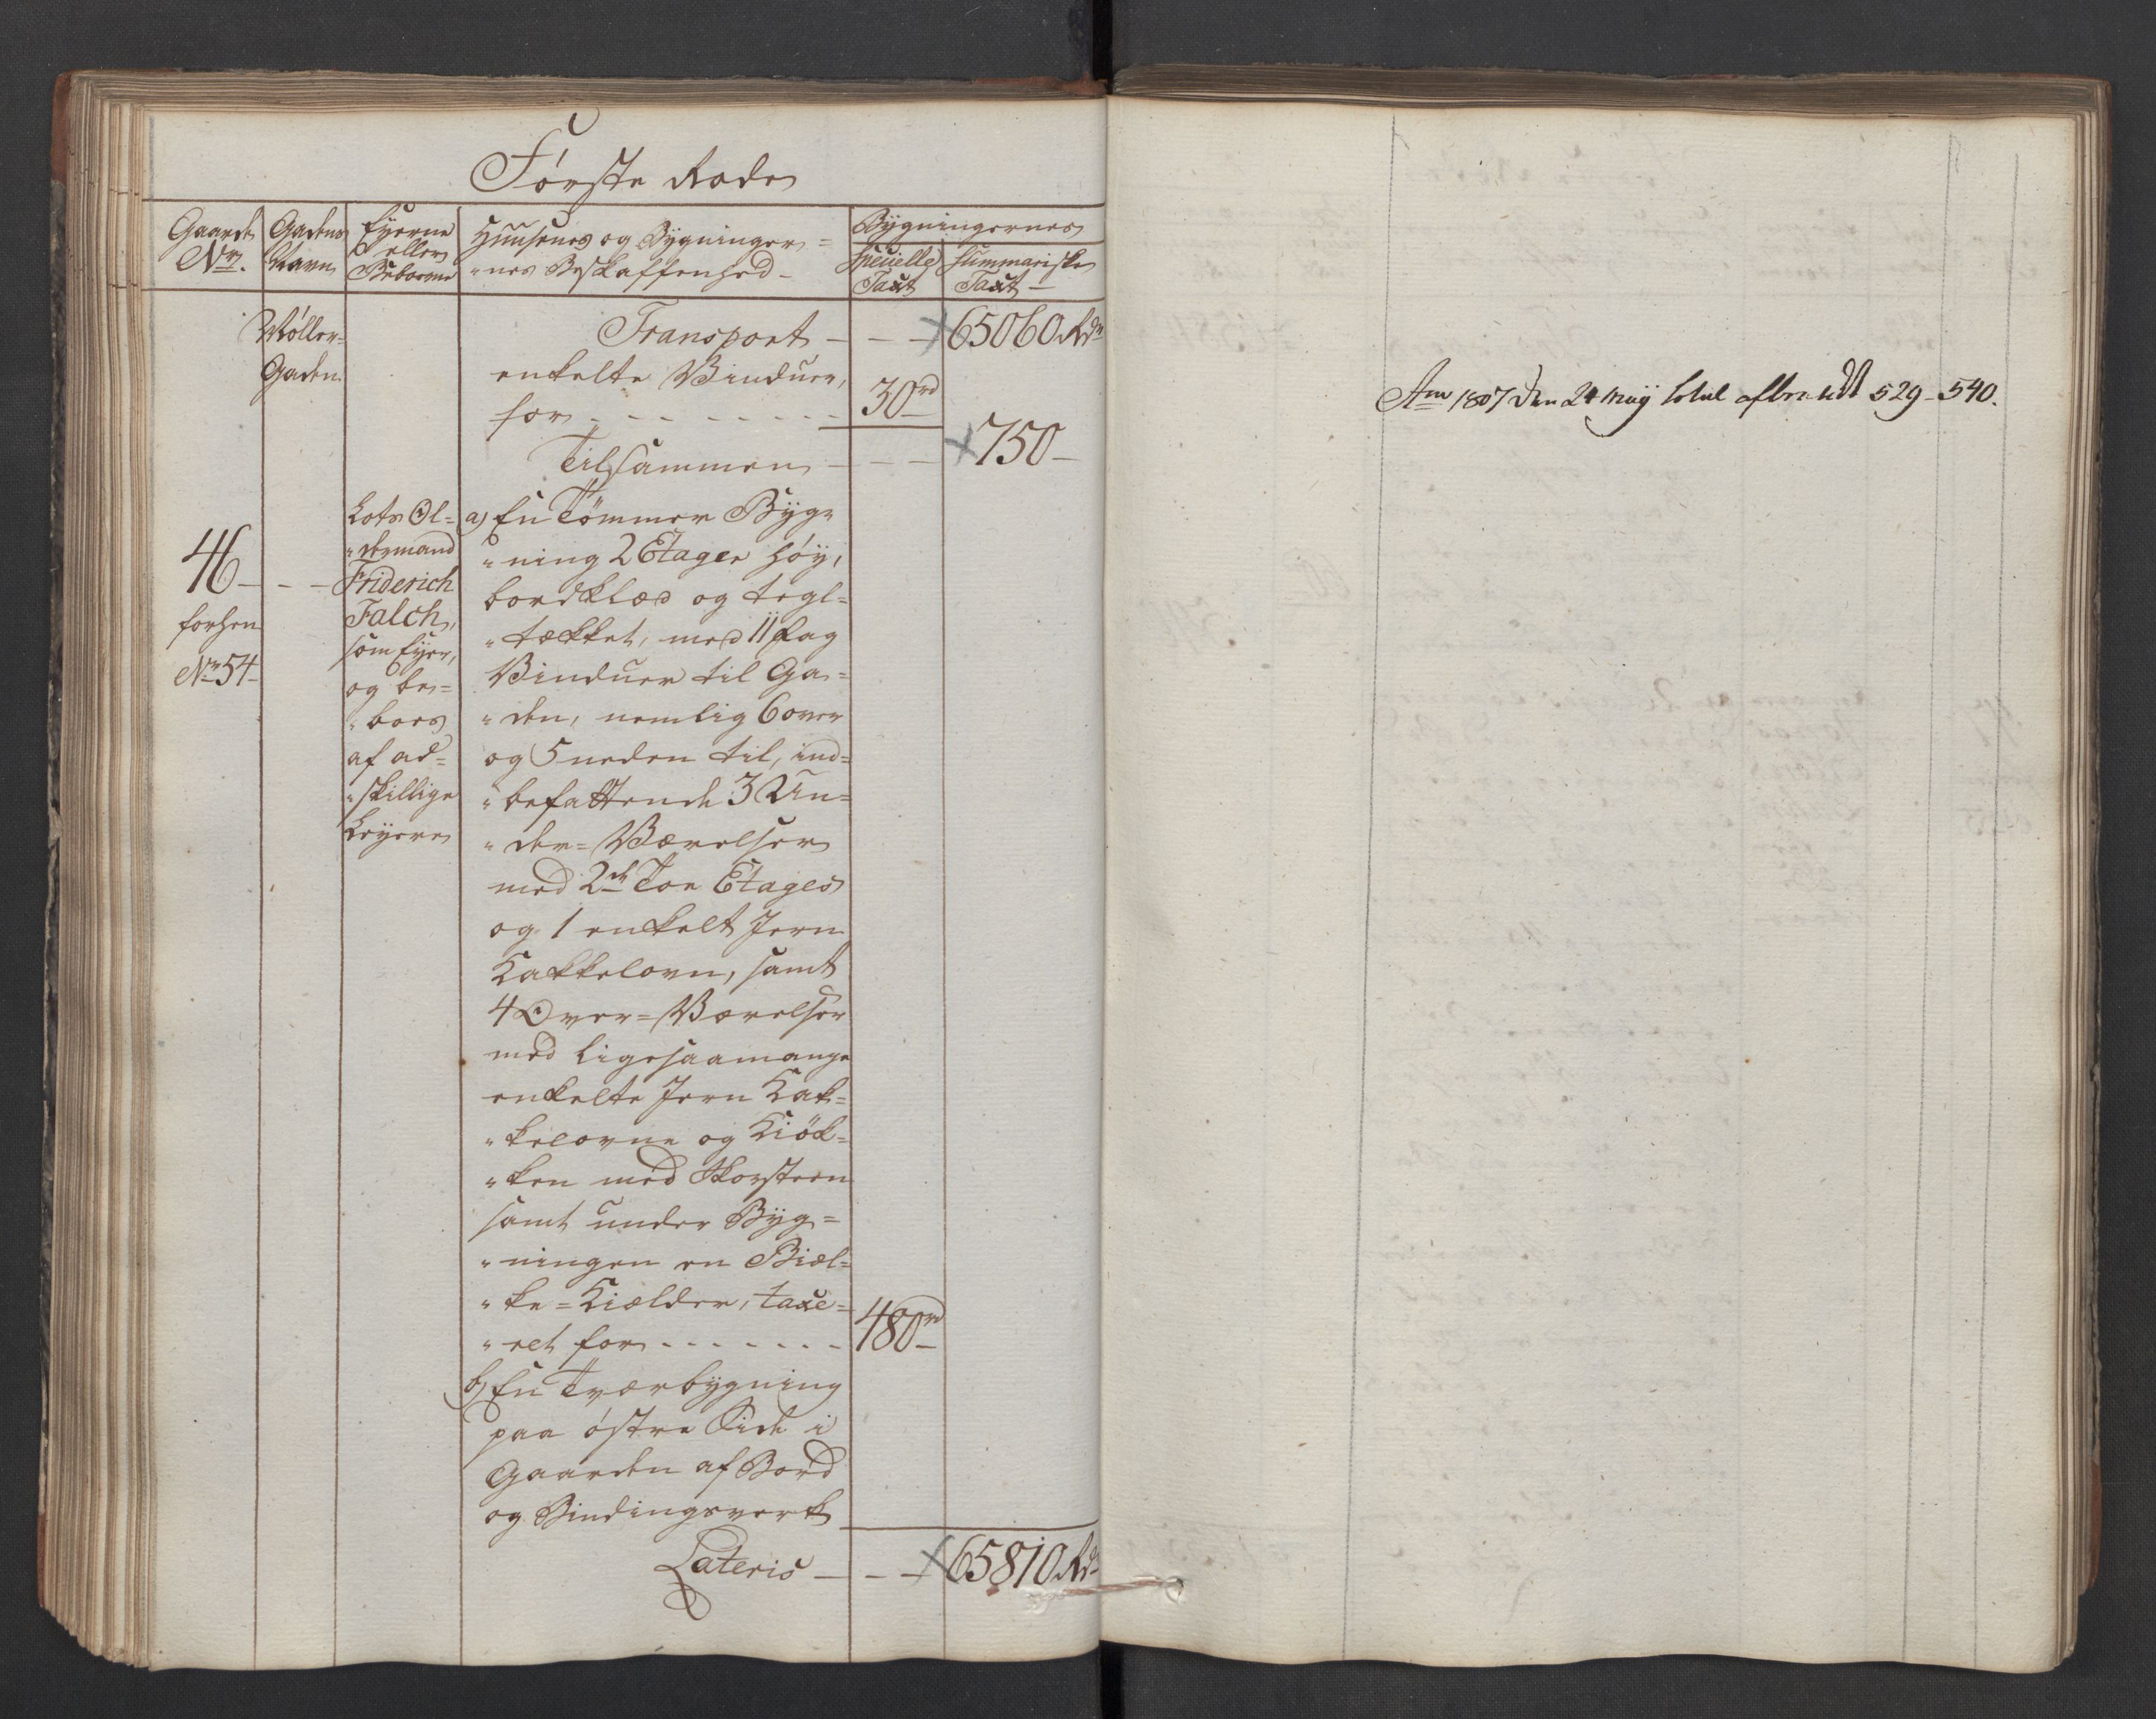 Første Rode
Gaardens No.
Gadens Navn
Eyerne eller Beboerne
Huusenes og Bygninger=
"nes Beskaffenhed
Bygningernes
Specielle Taxt
Summariske Taxt
Møller=
Gaden
Transport - - - 65060 Rdr
enkelte Vinduer,
for - - - - - - 30 rd
Tilsammen - - - 750 -
46 - - -
forhen
No 54
Lots Ol=
"dermand
Friderich
Falch,
som Eyer,
og be=
"boes
af ad=
"skillige
Leyere
a) En Tømmer Byg=
"ning 2 Etager høy,
bordklæd og tegl=
"tækket, med 11 fag
Vinduer til Ga=
"den, nemlig 6 over
og 5 neden til, ind=
"befattende 3 Un=
"der=Værelser
med 2de Toe Etages
og 1 enkelt Jern
Kakkelovn, samt
4 Over=Værelser
med ligesaamange
enkelte Jern Kak=
"kelovne og Kiøk=
"ken med Skorsteen
samt under Byg=
"ningen en Biel=
"ke=Kielder, taxe=
"ret for - - - - - - - 480 rd
b) En Tværbygning
paa østre Side i
Gaarden af Bord
og Bindingsverk
Lateris - - - 65810 Rd
Ano 1807 den 24 Maÿ total afbrendt 529-540.